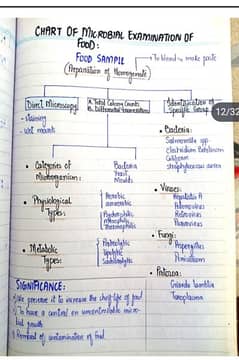 CHART OF MICROBIAL EXAMINATION OF
FOOD:
FOOD SAMPLE
To blend to make paste
(Preparation of Homogenate)
Direct Microscopy
- staining
- wet mounts
A. Total Colony Counts
B. Differential
Identification of
Specific Group
12/32
• Bacteria:
Salmonella spp
Clostridium
Coliform
Staphylococcus aureus
• Categories of
Microorganism:
Bacteria
Yeast
Moulds
• Physiological
Types:
Aerobic
Anaerobic
Psychrophilic
Mesophilic
Thermophilic
• Viruses:
Hepatitis A
Rotavirus
• Fungi:
Aspergillus
Penicillium
• Metabolic
Types:
Proteolytic
Lipolytic
Saccharolytic
• Protozoa:
Giardia lamblia
Toxoplasma
SIGNIFICANCE:
We preserve it to increase the shelf-life of food
To have a control on uncontrollable micro-
bial growth
Removal of contamination of food